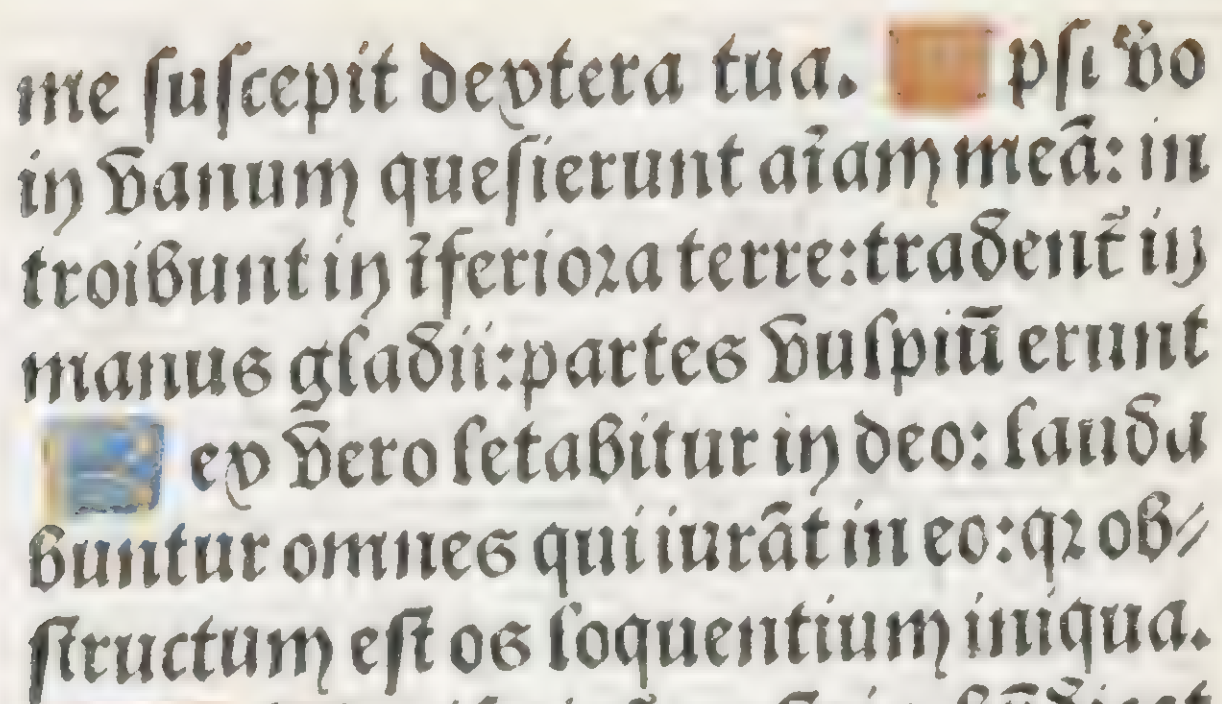 me ſuſcepit dextera tua. I pſi v̄o
in vanum queſierunt aīam meā: in
troibunt in īferiora terre: tradent̄ in
manus gladii: partes vulpiū erunt
R ex vero letabitur in deo: lauda
buntur omnes qui iurāt in eo: qꝛ ob⸗
ſtructum eſt os loquentium iniqua.